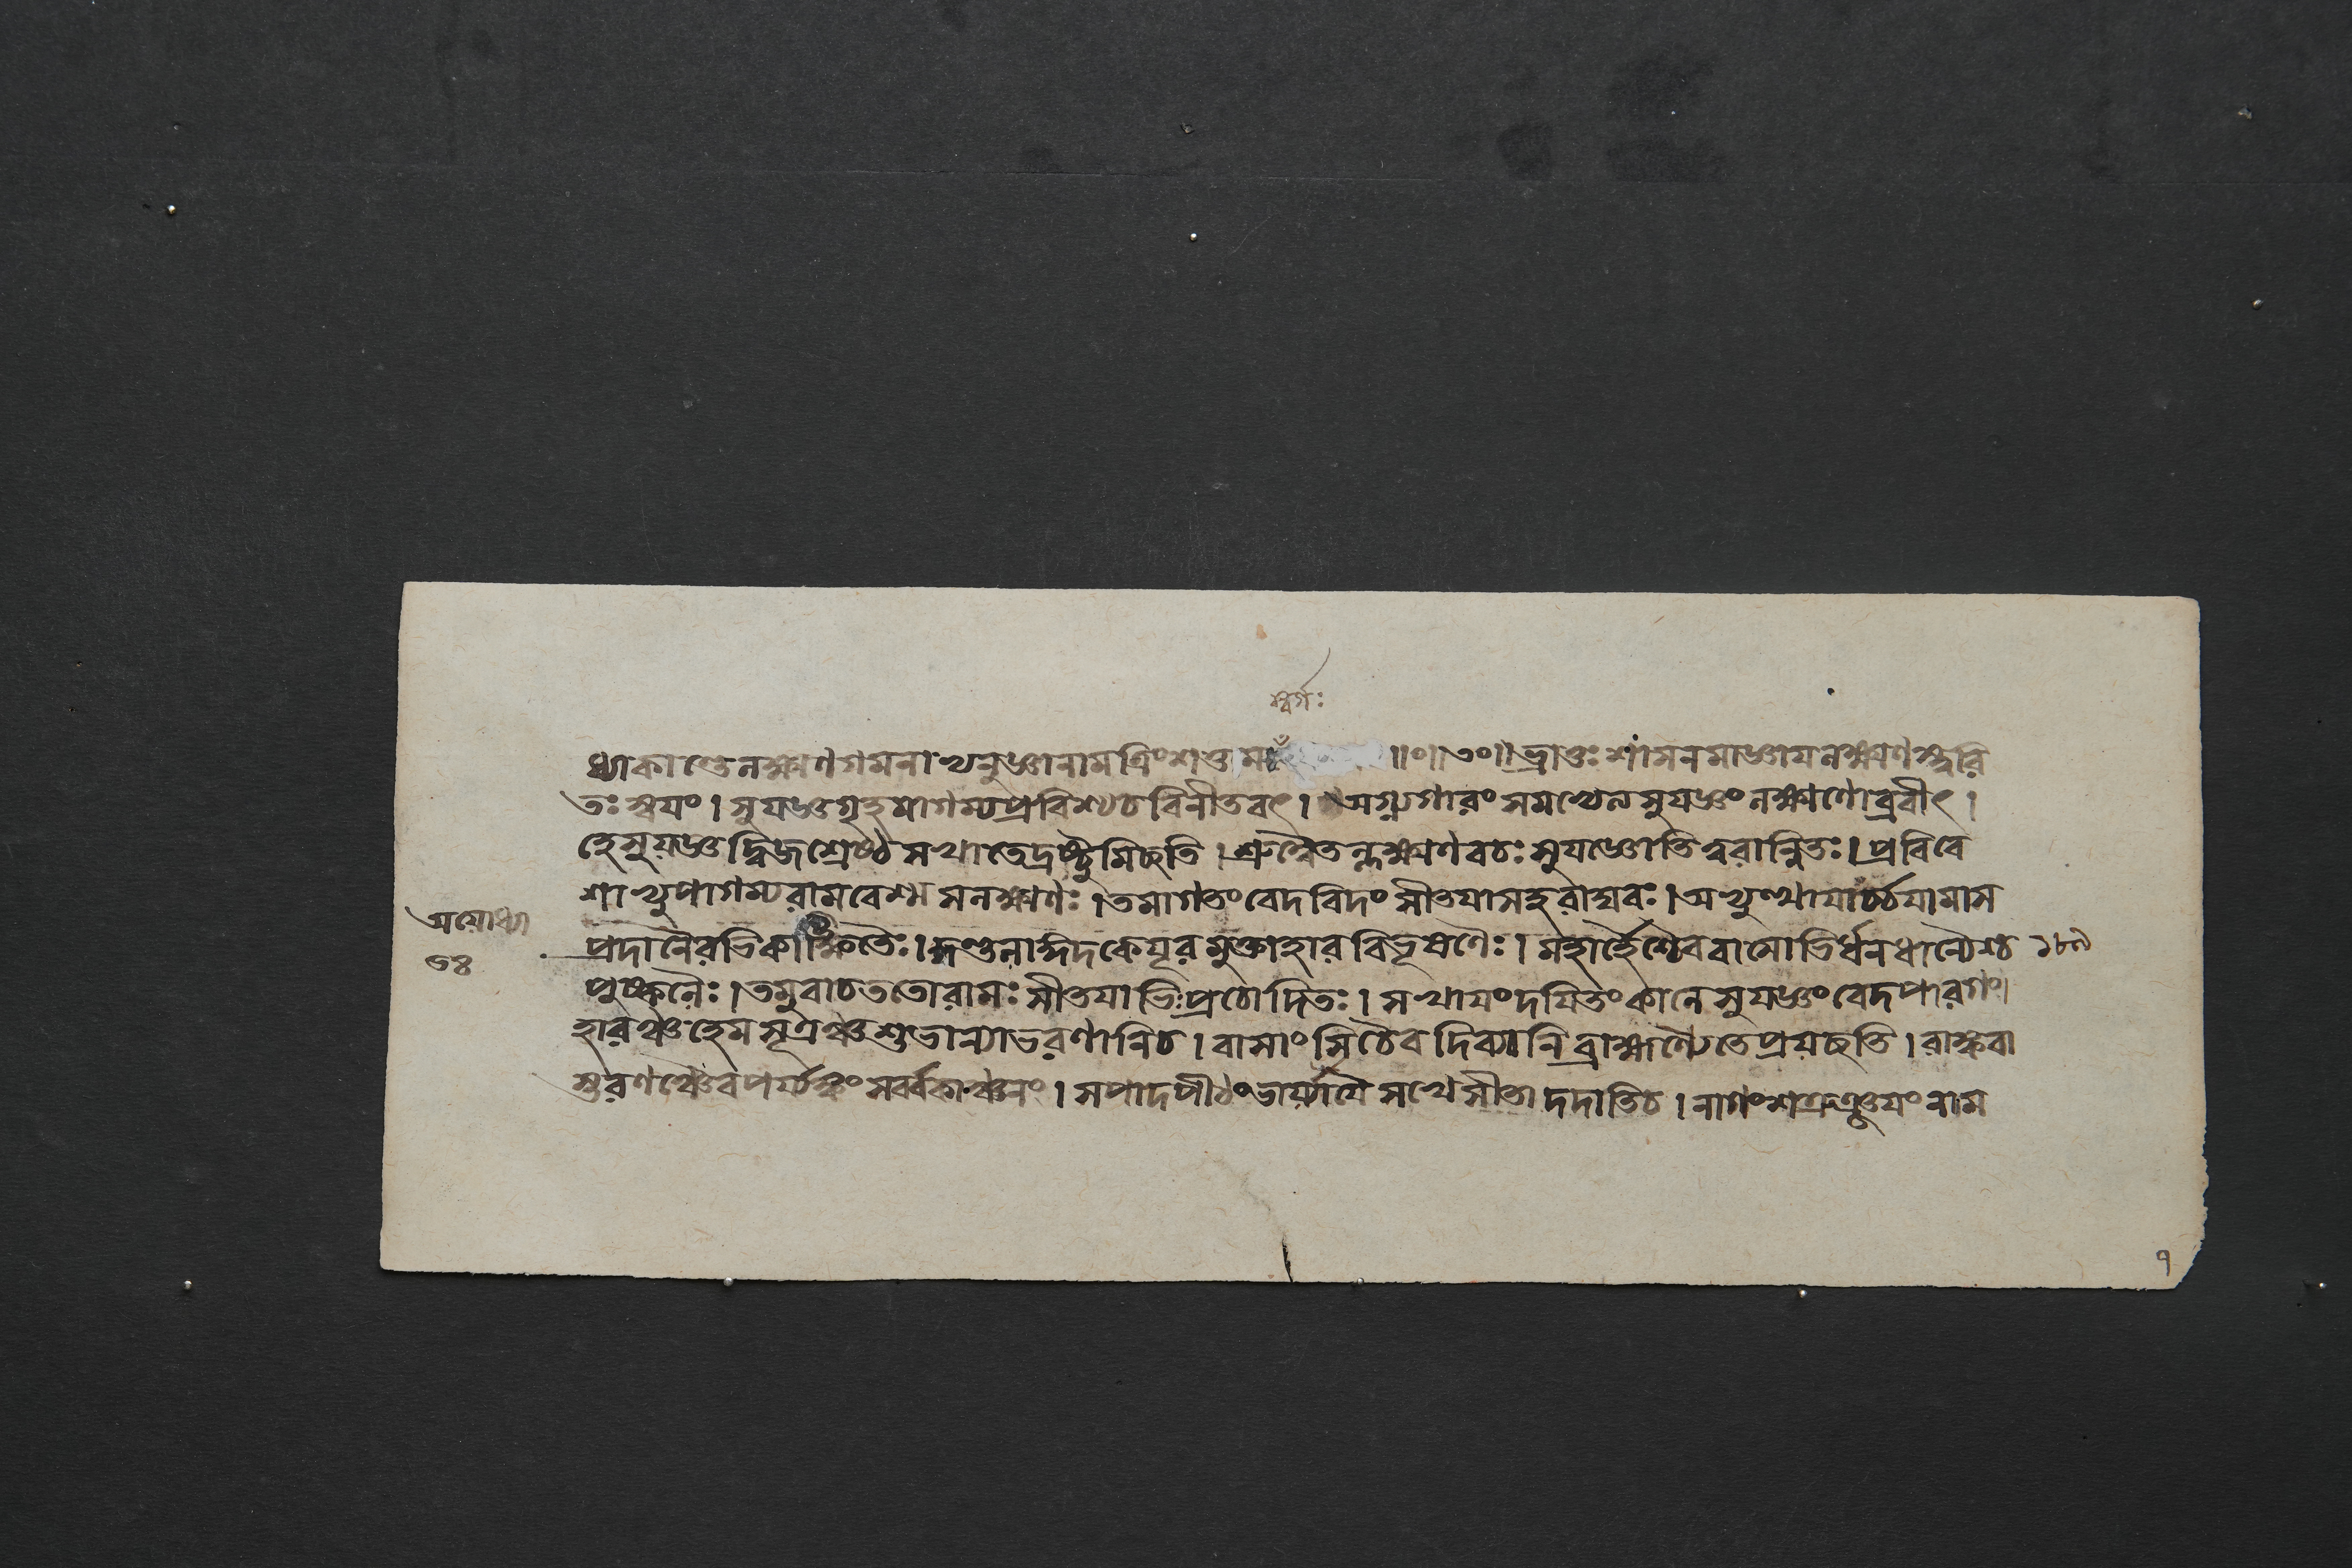 স্বর্গঃ
ধ্যাকাণ্ডেলক্ষ্মণগমনাভ্যনুজ্ঞানামত্রিংশত্তম ॥০॥৩০॥ভ্রাতুঃশাসনমাজ্ঞাযলক্ষ্মণস্ত্বরি
তঃস্বযং।সুযজ্ঞগৃহমাগম্যপ্রবিশ্যচবিনীতবৎ। অগ্ন্যগারংসমভ্যেত্যসুযজ্ঞংলক্ষ্মণোব্রবীৎ।
হেসুয়জ্ঞদ্বিজশ্রেষ্ঠসখাতেদ্রষ্টুমিচ্ছতি।শ্রুত্বৈতল্লক্ষ্মণবচঃসুযজ্ঞোতিত্বরান্বিতঃ।প্রবিবে
শাভ্যুপাগম্যরামবেশ্মসলক্ষ্মণঃ।তমাগতংবেদবিদংসীতযাসহরাঘবঃ।অভ্যুত্থাযার্চ্চযামাস
অযোধ্যা
প্রদানৈরভিকাঙ্ক্ষিতৈঃ।কুণ্ডলাঙ্গদকেযূরমুক্তাহারবিভূষণৈঃ।মহার্হৈশ্চৈববাসোভির্ধনধান্যৈশ্চ ১৮৯
৬৪
পুষ্কলৈঃ।তমুবাচততোরামঃসীতযাভিপ্রচোদিতঃ।সখাযংদযিতংকালেসুযজ্ঞংবেদপারগং।
হারঞ্চহেমসূত্রঞ্চশুভান্যাভরণানিচ।বাসাংসিচৈবদিব্যানিব্রাহ্মণ্যৈতেপ্রয়চ্ছতি।রাঙ্কবা
স্তরণঞ্চৈবপর্য্যঙ্কংসর্ব্বকাঞ্চনং।সপাদপীঠংভার্য্যাযৈসখেসীতাদদাতিচ।নাগংশত্রুঞ্জযংনাম
৭